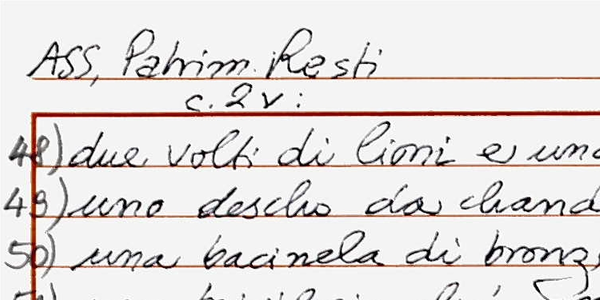 ASS, Patrim. Resti
c. 2 v :
48) due volti di lioni e
49) uno descho da
50) una bacinela di